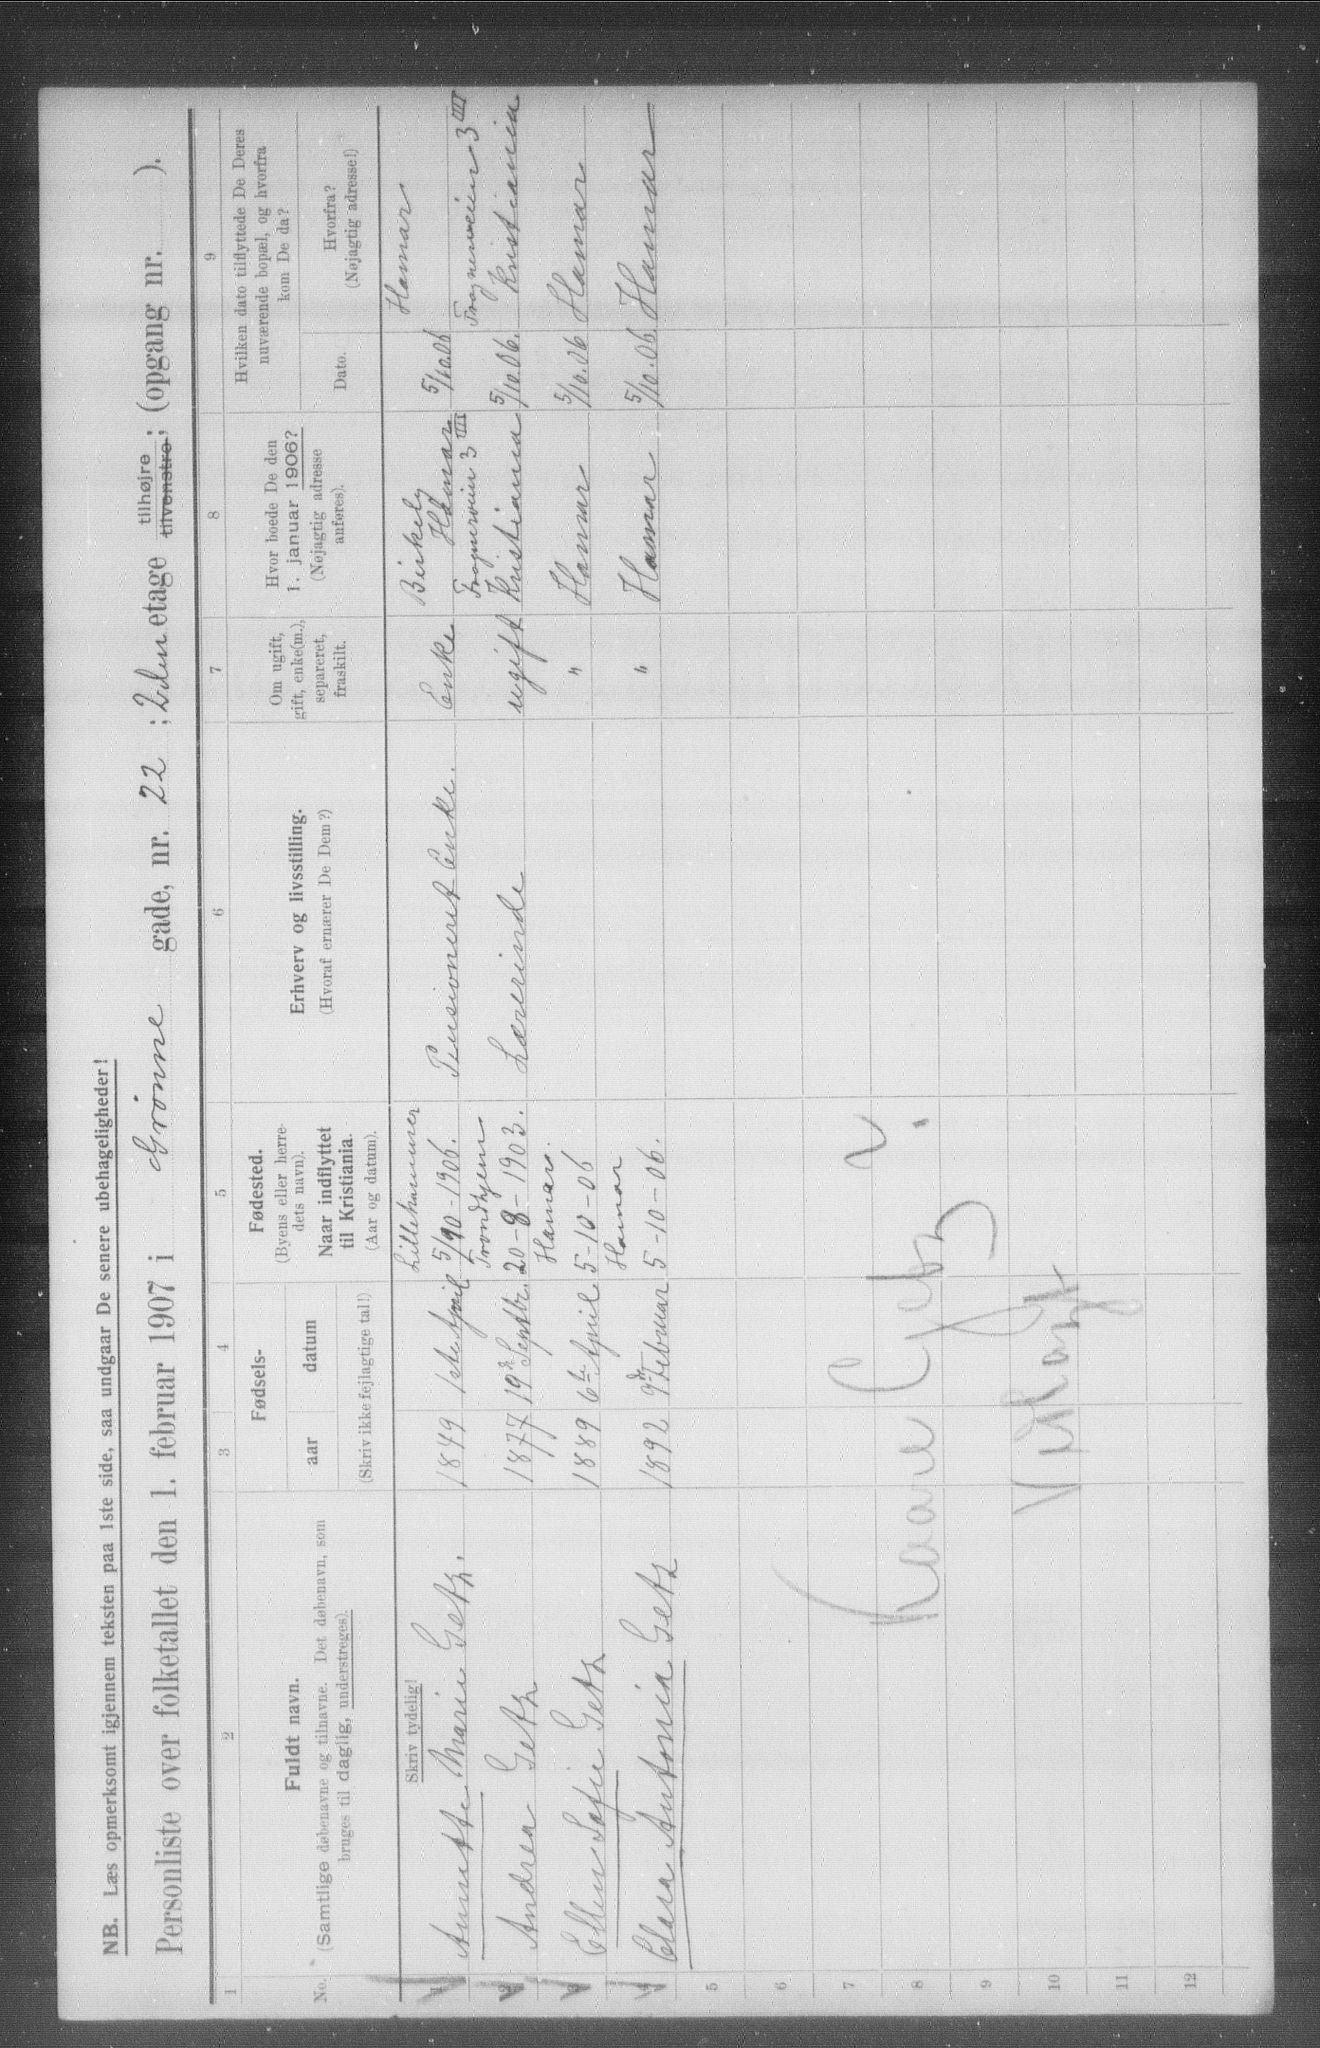 NB. Læs opmerksomt igjennem teksten paa 1ste side, saa undgaar De senere ubehageligheder!
Personliste over folketallet den 1. februar 1907 i Grønne gade, nr. 22 ; 2den etage tilhøjre tilvenstre ; (opgang nr. ).
1 2 3 4 5 6 7 8 9
No.
Fuldt navn.
(Samtlige døbenavne og tilnavne. Det døbenavn, som
bruges til daglig, understreges).
Skriv tydelig!
Fødsels-
aar datum
(Skriv ikke fejlagtige tal!)
Fødested.
(Byens eller herre-
dets navn).
Naar indflyttet
til Kristiania.
(Aar og datum).
Erhverv og livsstilling.
(Hvoraf ernærer De Dem?)
Om ugift,
gift, enke(m.),
separeret,
fraskilt.
Hvor boede De den
1. januar 1906?
(Nøjagtig adresse
anføres).
Hvilken dato tilflyttede De Deres
nuværende bopæl, og hvorfra
kom De da?
Dato.
Hvorfra?
(Nøjagtig adresse!)
Lillehammer Birkely Hamar
1 Annette Marie Getz. 1849 1ste April 5/10-1906. Pensioneret Enke. Enke Hamar 5/10.06
Trondhjem Frognerveien 3 III Frognerveien 3 III
2 Andrea Getz 1877 19de Septbr. 20-8-1903. Lærerinde ugift Kristiania 5/10.06. Kristiania
Hamar.
3 Ellen Sofie Getz 1889 6te April 5-10-06 " Hamar 5/10.06 Hamar
Hamar
4 Clara Antonia Getz 1892 9de Februar 5-10-06. " Hamar 5/10.06. Hamar
5
6
7
8
9
10
11
12